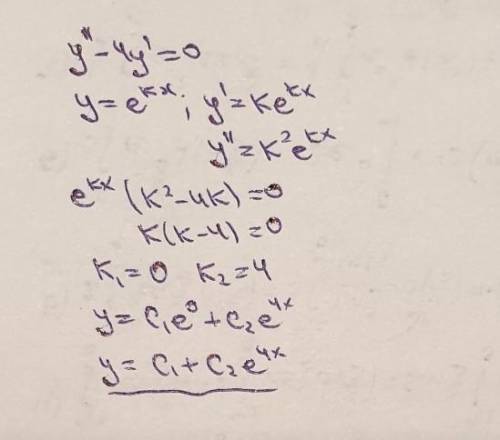 y'' - 4y' = 0
y = e^{kx}; y' = ke^{kx}
y'' = k^2 e^{kx}
e^{kx} (k^2 - 4k) = 0
k(k - 4) = 0
k_1 = 0 k_2 = 4
y = C_1 e^0 + C_2 e^{4x}
y = C_1 + C_2 e^{4x}